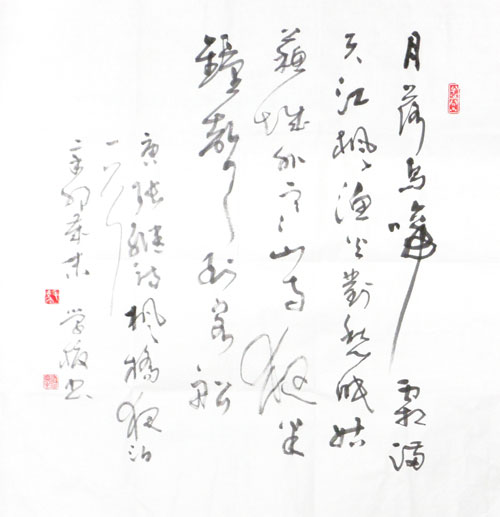 月落烏啼霜滿
天江楓漁火對愁眠姑
蘇城外寒山寺夜半
鐘聲到客船
唐張繼詩楓橋夜泊
辛卯歲末